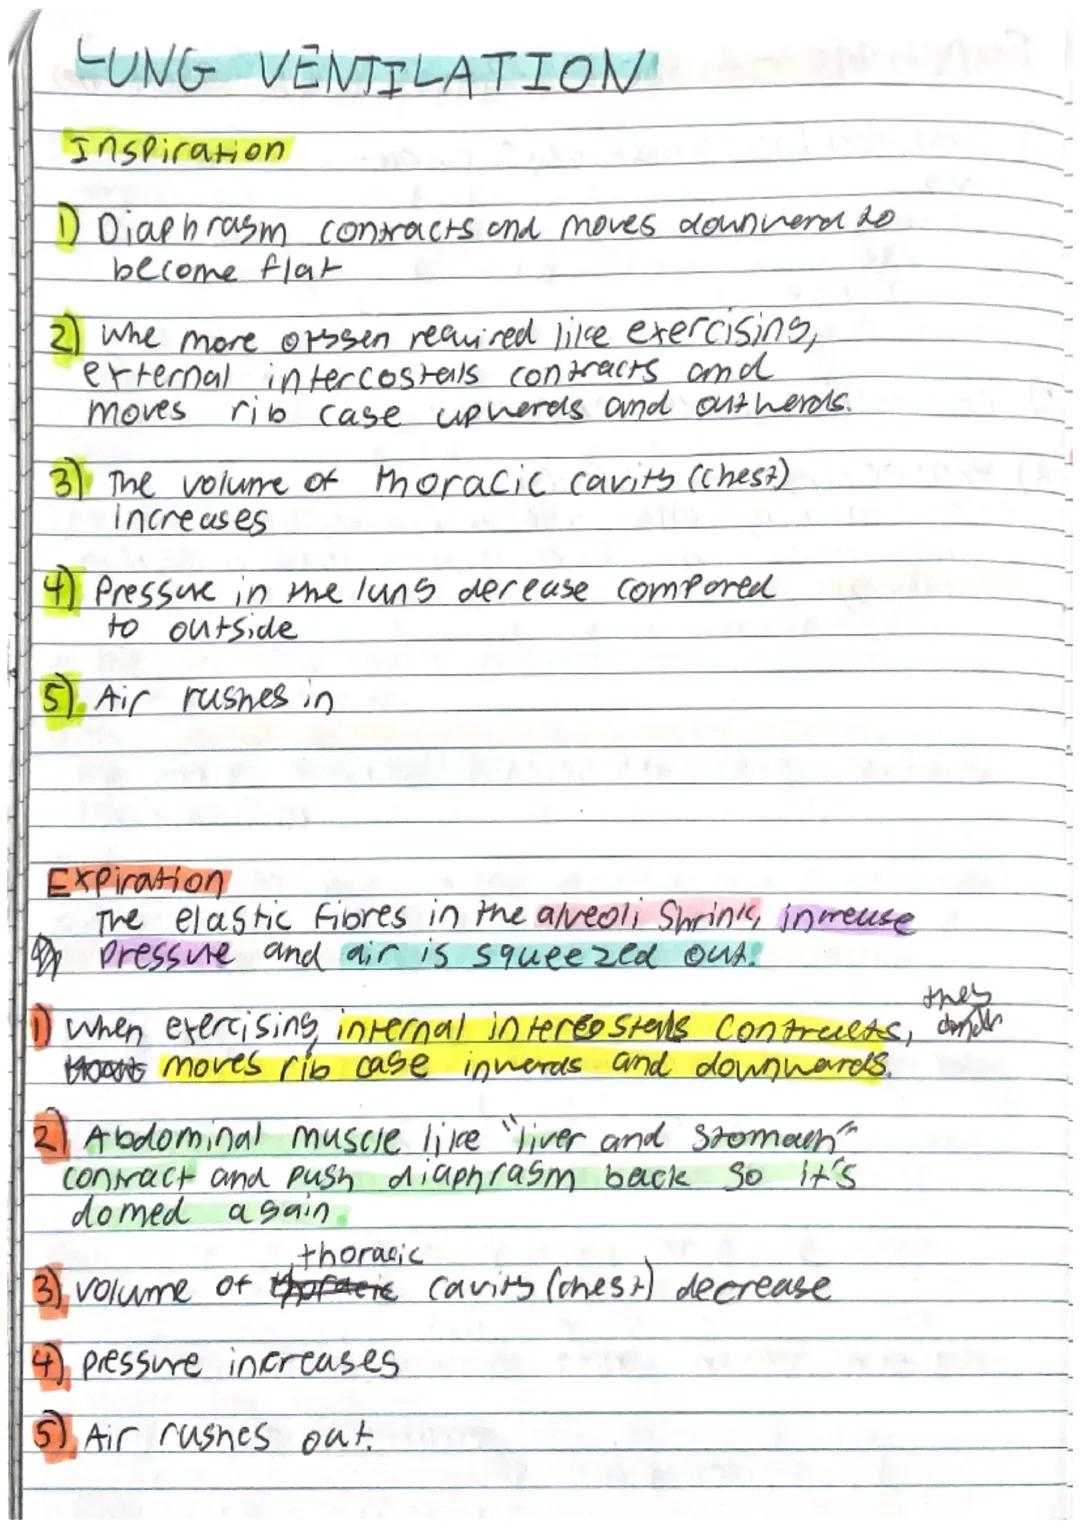 LUNG VENTILATION
Inspiration
1) Diaphragm contracts and moves downward to
become flat
2) Whe more oxygen required like exercising,
external intercostals contracts and
moves rib cage upwards and outwards.
3) The volume of thoracic cavity (chest)
increases
4) Pressure in the lung derease compared
to outside
5) Air rushes in
Expiration
The elastic fibres in the alveoli shrink, increase
pressure and air is squeezed out.
they
1) when exercising, internal intercostals contracts,
moves rib cage inwards and downwards.
2) Abdominal muscle like "liver and stomach"
contract and push diaphragm back so it's
domed again.
thoracic
3) volume of thoracic cavity (chest) decrease
4) pressure increases
5) Air rushes out.